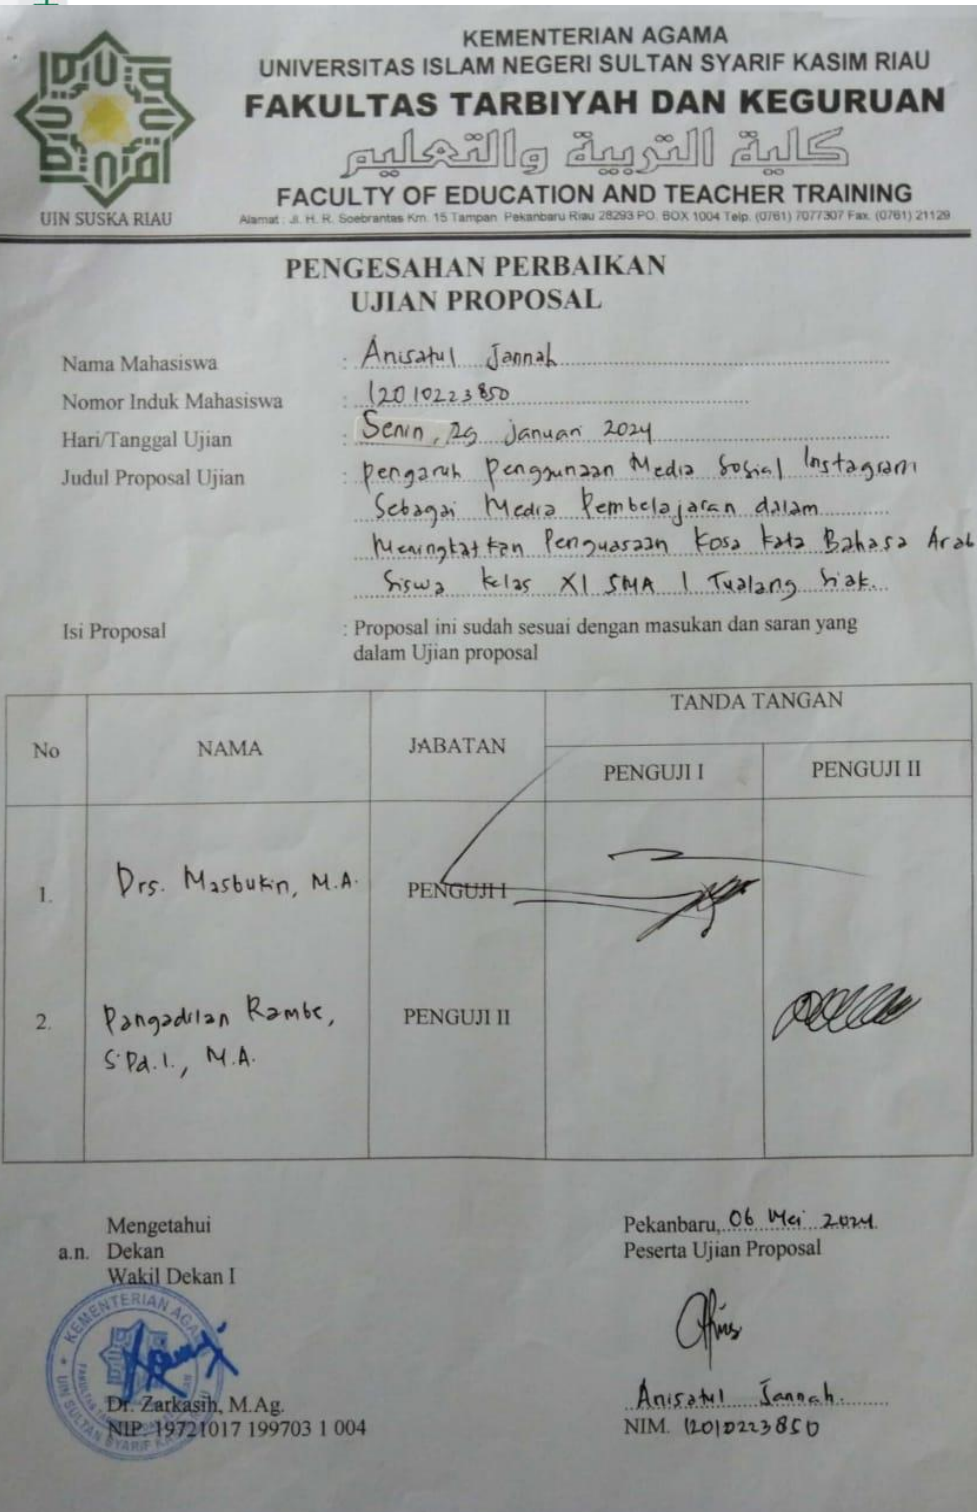 KEMENTERIAN AGAMA
UNIVERSITAS ISLAM NEGERI SULTAN SYARIF KASIM RIAU
FAKULTAS TARBIYAH DAN KEGURUAN
كلية التربية والتعليم
FACULTY OF EDUCATION AND TEACHER TRAINING
UIN SUSKA RIAU
Alamat : Jl. H. R. Soebrantas Km. 15 Tampan Pekanbaru Riau 28293 PO. BOX 1004 Telp. (0761) 7077307 Fax. (0761) 21129
PENGESAHAN PERBAIKAN
UJIAN PROPOSAL
Nama Mahasiswa : Anisatul Jannah
Nomor Induk Mahasiswa : 12010223850
Hari/Tanggal Ujian : Senin, 29 Januari 2024
Judul Proposal Ujian : Pengaruh Penggunaan Media Sosial Instagram
Sebagai Media Pembelajaran dalam
Meningkatkan Penguasaan Kosa kata Bahasa Arab
Siswa kelas XI SMA 1 Tualang Siak.
Isi Proposal : Proposal ini sudah sesuai dengan masukan dan saran yang
dalam Ujian proposal
No NAMA JABATAN TANDA TANGAN
PENGUJI I PENGUJI II
1. Drs. Masbukin, M.A. PENGUJI I
2. Pangadilan Rambe, PENGUJI II
S.Pd.I., M.A.
Mengetahui
a.n. Dekan
Wakil Dekan I
KEMENTERIAN AGAMA
UIN SULTAN SYARIF
Dr. Zarkasih, M.Ag.
NIP. 19721017 199703 1 004
Pekanbaru, 06 Mei 2024
Peserta Ujian Proposal
Anisatul Jannah.
NIM. 12010223850